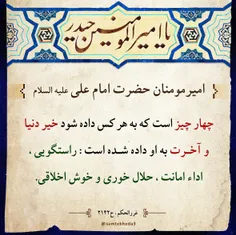 یا امیرالمومنین حیدر
امیرمومنان حضرت امام علی علیه السلام
چهار چیز است که به هر کس داده شود خیر دنیا
و آخرت به او داده شده است : راستگویی ،
اداء امانت ، حلال خوری و خوش اخلاقی.
غررالحکم ، ح۲۱۴۲
@samtekhoda3